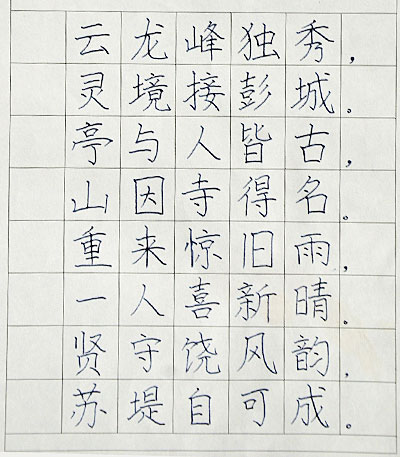 云龙峰独秀，
灵境接彭城。
亭与人皆古，
山因寺得名。
重来惊旧雨，
一人喜新晴。
贤守饶风韵，
苏堤自可成。